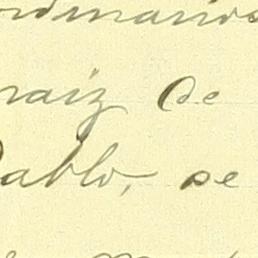 rdinarios
raiz de
Pablo, se